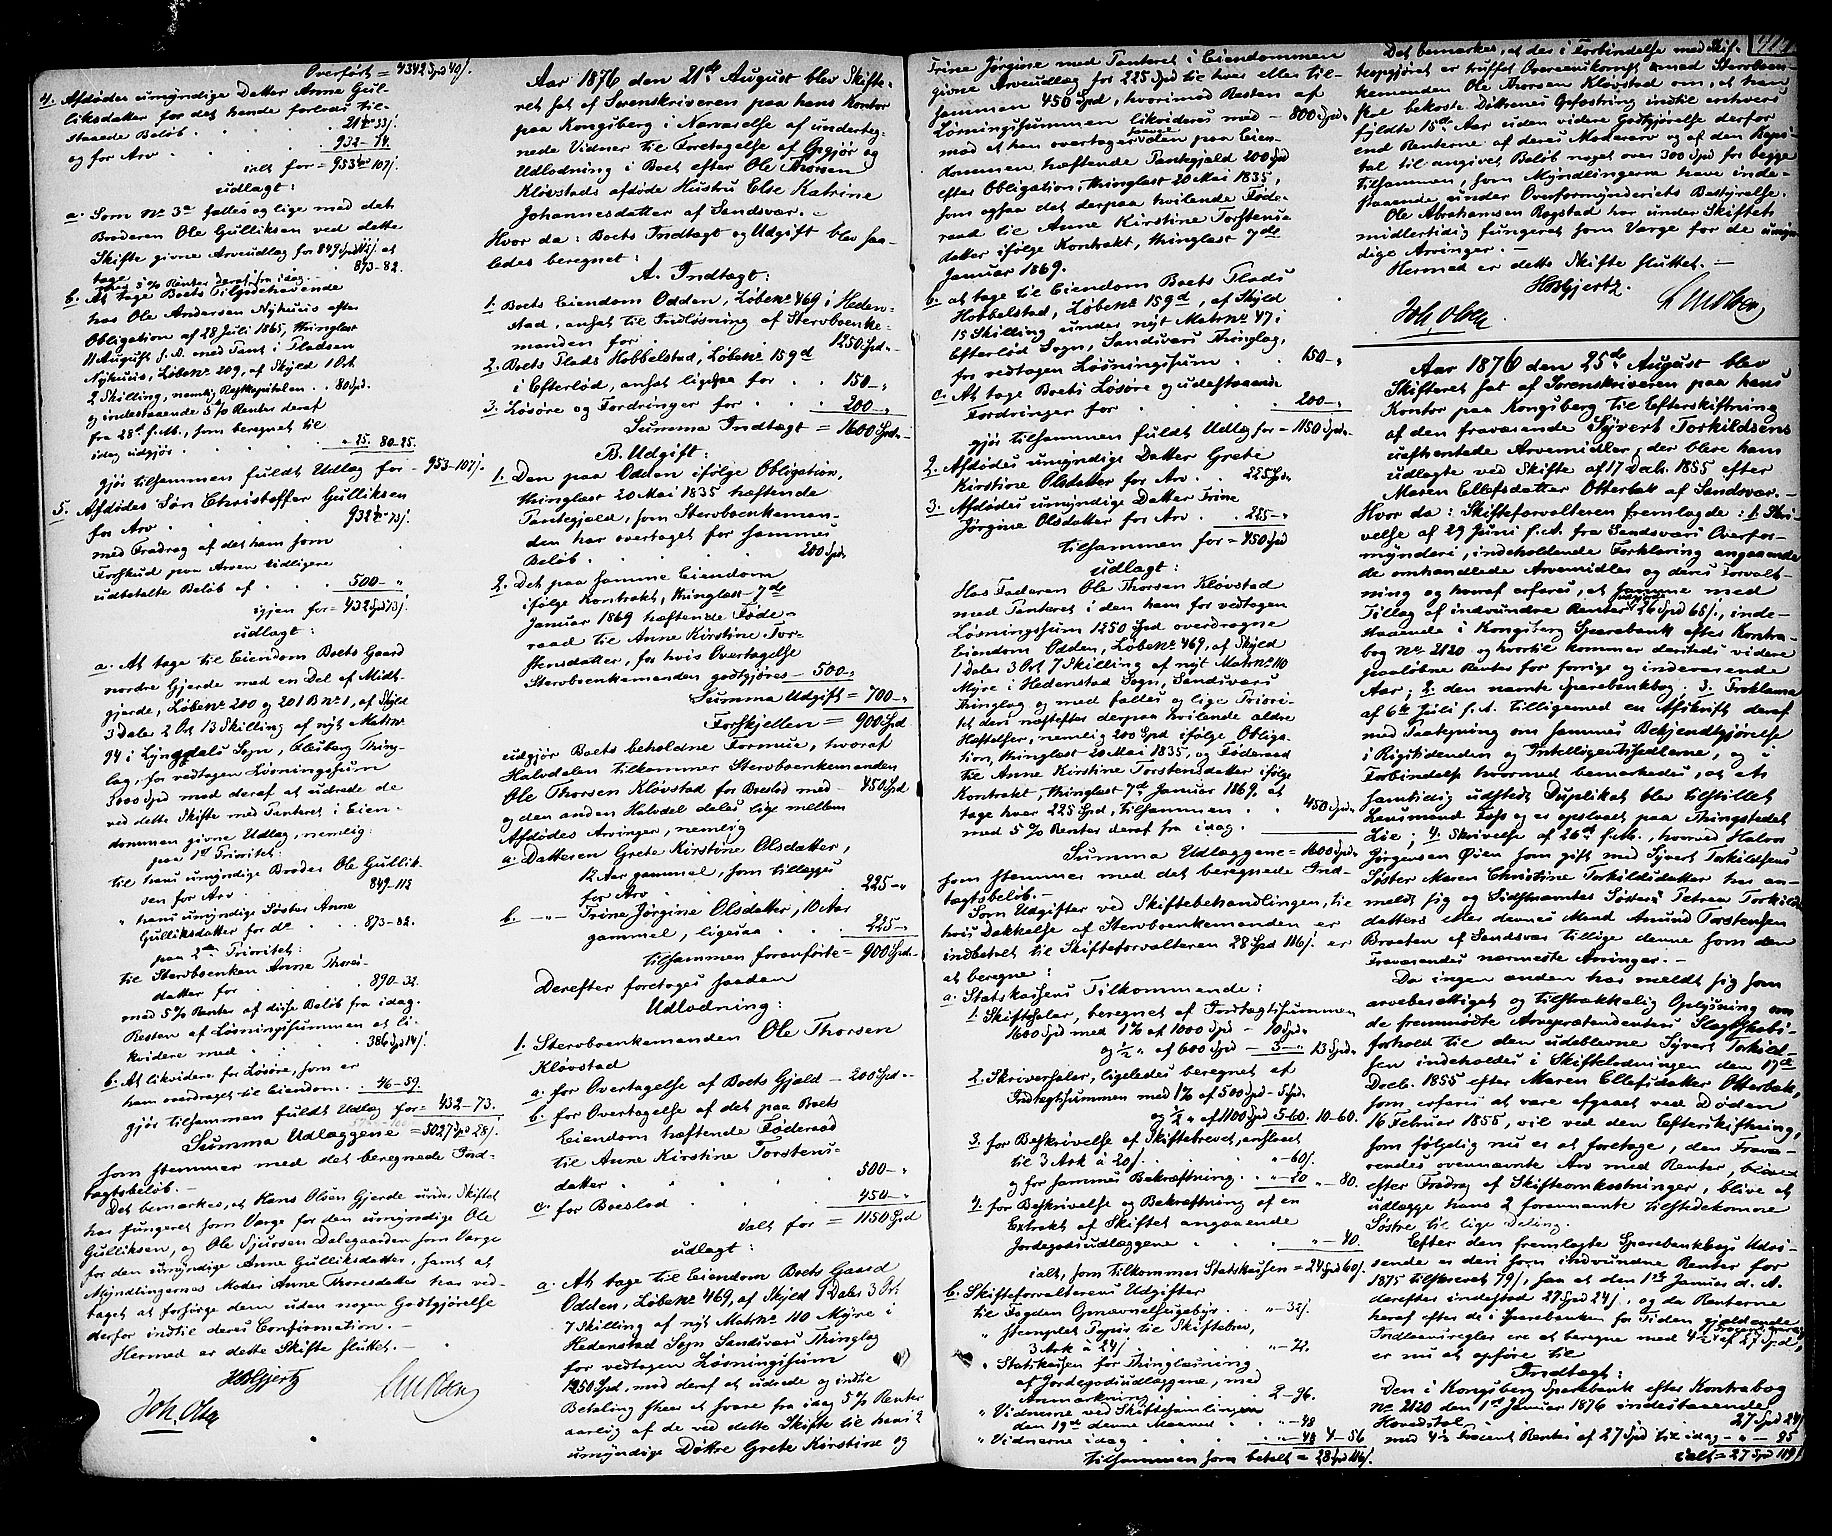 Overført = 4342 Spd 40/.
4. Afdødes umyndige Datter Anne Gul-
liksdatter for det hende forlods til-
staaede Beløb . . . 21 " 33/.
og for Arv . . . 932 - 74.
ialt for = 953 " 107/.
udlagt:
a. Som No 3a fælles og lige med det
Broderen Ole Gulliksen ved dette
Skifte givne Arveudlag for 849 Spd 113/. at
tage . . . 873 - 82.
med 5 % Renter deraf fra idag.
b. At tage Boets tilgodehavende
hos Ole Andersen Nyhuus efter
Obligation af 28 Juli 1865, thinglæst
11 August s. A. med Pant i Pladsen
Nyhuus, Løbeno 209, af Skyld 1 Ort
2 Skilling, nemlig Restkapitalen . . 80 Spd.
og indestaaende 5 % Renter deraf
fra 28de f. M., som beregnet til
idag udgjør . . . " 25. 80 - 25.
gjør tilsammen fuldt Udlæg for - 953 - 107/.
5. Afdødes Søn Christoffer Gulliksen
for Arv . . . 932 " 73/.
med Fradrag af det ham som
Forskud paa Arven tidligere
udbetalte Beløb af . . . 500 - "
igjen for = 432 Spd 73/.
udlagt:
a. At tage til Eiendom Boets Gaard
nordre Gjerde med en Del af Midt-
gjerde, Løbeno 200 og 201 B No 1, af Skyld
3 Daler 2 Ort 13 Skilling af nyt Matrno
94 i Lyngdals Sogn, Flesberg Thing-
lag, for vedtagen Løsningssum
3000 Spd mod deraf at udrede de
ved dette Skifte med Panteret i Eien-
dommen givne Udlæg, nemlig:
paa 1ste Prioritet:
til hans umyndige Broder Ole Gullik-
sen for Arv . . . 849 - 113
" hans umyndige Søster Anne
Gulliksdatter for do . . . 873 - 82.
paa 2den Prioritet:
til Stervboenken Anne Thores-
datter for . . . 890 - 32.
med 5 % Renter af disse Beløb fra idag.
Resten af Løsningssummen at li-
kvidere med . . . 386 Spd 14/.
b. At likvidere for Løsøre, som er
ham overdraget til Eiendom . . 46 - 59.
gjør tilsammen fuldt Udlæg for = 432 - 73.
Summa Udlæggene = 5027 Spd 28/.
som stemmer med det beregnede Ind-
tægtsbeløb. -
Det bemærkes, at Hans Olsen Gjerde under Skiftet
har fungeret som Værge for den umyndige Ole
Gulliksen, og Ole Sjursen Dalegaarden som Værge
for den umyndige Anne Gulliksdatter, samt at
Myndlingernes Moder Anne Thoresdatter har ved-
taget at forsørge dem uden nogen Godtgjørelse
derfor indtil deres Confirmation. -
Hermed er dette Skifte sluttet. -
Joh, Olsen
Aar 1876 den 21de August blev Skifte-
ret sat af Sorenskriveren paa hans Kontor
paa Kongsberg i Nærværelse af underteg-
nede Vidner til Foretagelse af Opgjør og
Udlodning i Boet efter Ole Thorsen
Kløvstads afdøde Hustru Else Katrine
Johannesdatter af Sandsvær. -
Hvor da: Boets Indtægt og Udgift blev saa-
ledes beregnet:
A. Indtægt:
1. Boets Eiendom Odden, Løbeno 469 i Heden-
stad, ansat til Indløsning af Stervboenke-
manden for . . . 1250 Spd. "
2. Boets Plads Hobbelstad, Løbeno 159 d
i Efterlød, ansat ligesaa for . . . 150 - "
3. Løsøre og Fordringer for . . . 200 - "
Summa Indtægt = 1600 Spd. "
B. Udgift:
1. Den paa Odden ifølge Obligation,
thinglæst 20 Mai 1835 hæftende
Pantegjæld, som Stervboenkeman-
den har overtaget for sammes
Beløb . . . 200 Spd.
2. Det paa samme Eiendom
ifølge Kontrakt, thinglæst 7de
Januar 1869 hæftende Føde-
raad til Anne Kirstine Tor-
stensdatter, for hvis Overtagelse
Stervboenkemanden godtgjøres - 500 - "
Summa Udgift = 700 - "
Forskjellen = 900 Spd
udgjør Boets beholdne Formue, hvoraf
Halvdelen tilkommer Stervboenkemanden
Ole Thorsen Kløvstad for Boeslod med - 450 Spd
og den anden Halvdel deles lige mellem
Afdødes Arvinger, nemlig
a. Datteren Grete Kirstine Olsdatter,
12 Aar gammel, som tillægges
for Arv . . . 225 - "
b. - " - Trine Jørgine Olsdatter, 10 Aar
gammel, ligesaa . . . 225 - "
tilsammen foranførte = 900 Spd. "
Derefter foretoges saadan
Udlodning:
1. Stervboenkemanden Ole Thorsen
Kløvstad
a. for Overtagelse af Boets Gjæld - 200 Spd. "
b. for Overtagelse af det paa Boets
Eiendom hæftende Føderaad
til Anne Kirstine Torstens-
datter . . . 500 - "
c. for Boeslod . . . 450 - "
ialt for = 1150 Spd
udlagt:
a. At tage til Eiendom Boets Gaard
Odden, Løbeno 469, af Skyld 1 Daler 3 Ort
7 Skilling af nyt Matrno 110 Myre i
Hedenstad Sogn Sandsværs Thinglag
for vedtagen Løsningssum
1250 Spd, mod deraf at udrede og indtil
Betaling skeer at svare fra idag 5 % Renter
aarlig af de ved dette Skifte til hans 2
umyndige Døttre Grete Kirstine og
Trine Jørgine med Panteret i Eiendommen
givne Arveudlæg for 225 Spd til hver eller til-
sammen 450 Spd, hvorimod Resten af
Løsningssummen likvideres med - 800 Spd. "
mod at han overtager den paa Eien-
dommen hæftende Pantegjæld 200 Spd
efter Obligation, thinglæst 20 Mai 1835,
som ogsaa det derpaa hvilende Føde-
raad til Anne Kirstine Torstens-
datter ifølge Kontrakt, thinglæst 7de
Januar 1869.
b. at tage til Eiendom Boets Plads
Hobbelstad, Løbeno 159 d, af Skyld
15 Skilling under nyt Matrno 47 i
Efterløds Sogn, Sandsværs Thinglag,
for vedtagen Løsningssum . . 150 - "
c. At tage Boets Løsøre og udestaaende
Fordringer for . . . 200 - "
gjør tilsammen fuldt Udlæg for - 1150 Spd. "
2. Afdødes umyndige Datter Grete
Kirstine Olsdatter for Arv . . 225 Spd. "
3. Afdødes umyndige Datter Trine
Jørgine Olsdatter for Arv . . 225 - "
tilsammen for = 450 Spd
udlagt:
Hos Faderen Ole Thorsen Kløvstad
med Panteret i den ham for vedtagen
Løsningssum 1250 Spd overdragne
Eiendom Odden, Løbeno 469, af Skyld
1 Daler 3 Ort 7 Skilling af nyt Matrno 110
Myre i Hedenstad Sogn, Sandsværs
Thinglag og med fælles og lige Priori-
tet den næstefter derpaa hvilende ældre
Hæftelser, nemlig 200 Spd ifølge Obliga-
tion, thinglæst 20 Mai 1835, og Føderaad
til Anne Kirstine Torstensdatter ifølge
Kontrakt, thinglæst 7de Januar 1869, at
tage hver 225 Spd, tilsammen . . 450 Spd. "
med 5 % Renter deraf fra idag.
Summa Udlæggene = 1600 Spd. "
som stemmer med det beregnede Ind-
tægtsbeløb. -
Som Udgifter ved Skiftebehandlingen, til
hvis Dækkelse af Stervboenkemanden er
indbetalt til Skifteforvalteren 28 Spd 116/. er
at beregne:
a. Statskassens Tilkommende:
1. Skiftesalær, beregnet af Indtægtssummen
1600 Spd med 1 % af 1000 Spd - 10 Spd. "
og 1/2 " af 600 Spd - 3 - " 13 Spd. "
2. Skriversalær, ligeledes beregnet af
Indtægtssummen med 1 % af 500 Spd - 5 Spd.
og 1/2 " af 1100 Spd 5 - 60. 10 - 60.
3. for Beskrivelse af Skiftebrevet, anslaaet
til 3 Ark à 20/. . . " - 60/.
og for sammes Bekræftning . . " - 20 " - 80.
4. for Beskrivelse og Bekræftning af en
Extrakt af Skiftet angaaende
Jordegodsudlæggene . . . " - 40.
ialt, som tilkommer Statskassen = 24 Spd 60/.
b. Skifteforvalterens Udgifter
til Fogden Opnævnelsesgebyr . . " - 32/.
" stemplet Papir til Skiftebrev,
3 Ark à 24/. . . . " - 72.
" Statskassen for Thinglæsning
af Jordegodsudlæggene, med
Anmærkning . . . 2 - 96.
" Vidnerne ved Skiftesamlingen
den 19de denne Maaned . . " - 48
" Vidnerne idag . . . " - 48 4 - 56
tilsammen som betalt = 28 Spd 116/.
Det bemærkes, at der i Forbindelse med Skif-
teopgjøret er truffet Overeenskomst med Stervboen-
kemanden Ole Thorsen Kløvstad om, at han
skal bekoste Døttrenes Opfostring indtil enhvers
fyldte 15de Aar uden videre Godtgjørelse derfor
end Renterne af deres Mødrearv og af den Kapi-
tal til angivet Beløb noget over 300 Spd for begge
tilsammen, som Myndlingerne have inde-
staaende under Overformynderiets Bestyrelse.
Ole Abrahamsen Rogstad har under Skiftet
midlertidig fungeret som Værge for de umyn-
dige Arvinger. -
Hermed er dette Skifte sluttet. -
Joh, Olsen
Aar 1876 den 25de August blev
Skifteret sat af Sorenskriveren paa hans
Kontor paa Kongsberg til Efterskiftning
af den fraværende Syvert Torkildsens
uafhentede Arvemidler, der bleve ham
udlagte ved Skifte af 17 Decb. 1855 efter
Maren Ellefsdatter Otterbæk af Sandsvær. -
Hvor da: Skifteforvalteren fremlagde: 1. Skri-
velse af 29 Juni s. A. fra Sandsværs Overfor-
mynderi, indeholdende Forklaring angaaende
de omhandlede Arvemidler og deres Forvalt-
ning og hvoraf erfares, at samme med
Tillæg af indvundne Renter udgjør 26 Spd 65/., inde-
staaende i Kongsberg Sparebank efter Kontra-
bog No 2120 og hvortil kommer dersteds videre
paaløbne Renter for forrige og indeværende
Aar; 2. den nævnte Sparebankbog; 3. Proklama
af 6te Juli s. A. tilligemed en Afskrift deraf
med Paategning om sammes Bekjendtgjørelse
i Rigstidenden og Intelligentssedlerne, og i
Forbindelse hvormed bemærkedes, at et
samtidig udstedt Duplikat blev tilstillet
Lensmand Foss og er opslaaet paa Thingstedet
Løe; 4. Skrivelse af 26de f. M., hvorved Halvor
Jørgensen Øien som gift med Syvert Torkildsens
Søster Maren Christine Torkildsdatter har an-
meldt sig og Sidstnævntes Søster Petrea Torkilds-
datters eller dennes Mand Amund Torstensen
Braaten af Sandsvær tillige denne som den
Fraværendes nærmeste Arvinger. -
Da ingen anden har meldt sig som
arveberettiget og tilstrækkelig Oplysning om
de fremmødte Arveprætendenters Slægtskabs-
forhold til den udeblevne Syvert Torkild-
sen indeholdes i Skifteslutningen den 17de
Decb. 1855 efter Maren Ellefsdatter Otterbæk,
som erfares at være afgaaet ved Døden
16 Februar 1855, vil ved den Efterskiftning,
som følgelig nu er at foretage, den Fravæ-
rendes ovennævnte Arv med Renter, blive
efter Fradrag af Skifteomkostninger, blive at
udlægge hans 2 forannævnte tilstedekomne
Søstre til lige Deling.
Efter den fremlagte Sparebankbogs Udvi-
sende er den som indvundne Renter for
1875 tilskrevet 79/., saa at den 1ste Januar d. A.
derefter indestod 27 Spd 24/., og da Renterne
heraf efter de i Sparebanken for Tiden gjældende
Indlaansregler ere at beregne med 4 1/2 af 27 Spd,
er nu at opføre til
Indtægt:
Den i Kongsberg Sparebank efter Kontrabog
No 2120 den 1ste Januar 1876 indestaaende
Hovedstol . . . 27 Spd 24/.
med 4 1/2 Procent Renter af 27 Spd til idag - " - 95
ialt = 27 Spd 119/.